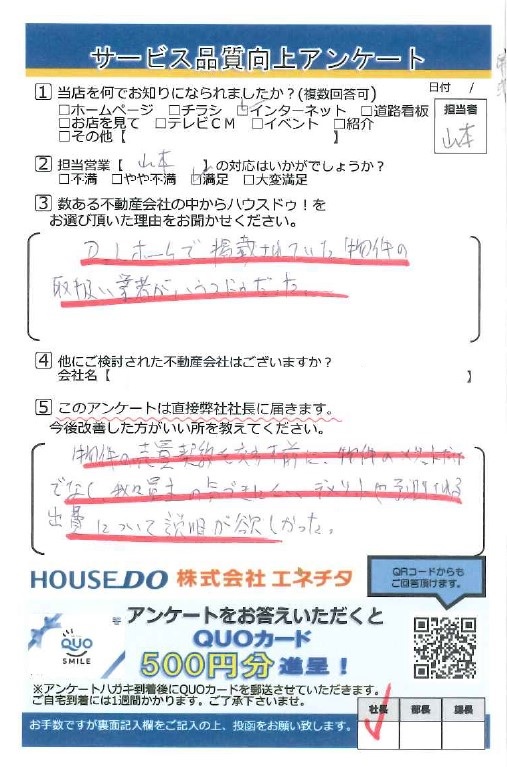 サービス品質向上アンケート
日付 /
1 当店を何でお知りになられましたか？(複数回答可)
□ホームページ □チラシ ☑インターネット □道路看板
□お店を見て □テレビCM □イベント □紹介
□その他【 】
担当者
山本
2 担当営業【 山本 】の対応はいかがでしょうか？
□不満 □やや不満 ☑満足 □大変満足
3 数ある不動産会社の中からハウスドゥ！を
お選び頂いた理由をお聞かせください。
掲載されていた物件の
取扱い業者が
4 他にご検討された不動産会社はございますか？
会社名【 】
5 このアンケートは直接弊社社長に届きます。
今後改善した方がいい所を教えてください。
物件の売買契約を交す前に、物件のメリットだけ
でなく、買主の デメリットや予測される
出費について説明が欲しかった。
HOUSE DO 株式会社 エネチタ
QRコードからも
ご回答頂けます。
アンケートをお答えいただくと
QUOカード
500円分 進呈！
QUO
SMILE
※アンケートハガキ到着後にQUOカードを郵送させていただきます。
ご自宅到着には1週間かかります。ご了承下さいませ。
お手数ですが裏面記入欄をご記入の上、投函をお願い致します。
社長 部長 課長